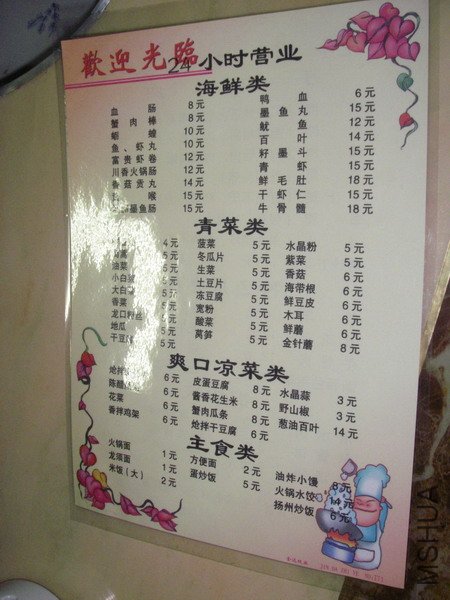 歡迎光臨 24小时营业
海鲜类
血肠 8元 鸭血 6元
蟹肉棒 8元 墨鱼丸 15元
蛔蝗 10元 鱿鱼 12元
鱼、虾丸 10元 百叶 14元
富贵虾卷 12元 籽墨斗 15元
川香火锅肠 12元 青虾 15元
香菇贡丸 14元 鲜毛肚 18元
喉 15元 干虾仁 15元
墨鱼肠 15元 牛骨髓 18元
青菜类
4元 菠菜 5元 水晶粉 5元
茼蒿 5元 冬瓜片 5元 紫菜 5元
油菜 5元 生菜 5元 香菇 6元
小白菜 5元 土豆片 5元 海带根 6元
大白菜 5元 冻豆腐 5元 鲜豆皮 6元
香菜 5元 宽粉 5元 木耳 6元
龙口粉丝 5元 酸菜 5元 鲜蘑 6元
地瓜 5元 莴笋 5元 金针蘑 8元
干豆 5元
爽口凉菜类
炝拌 6元 皮蛋豆腐 8元 水晶蒜 3元
陈醋 6元 酱香花生米 8元 野山椒 3元
花菜 6元 蟹肉瓜条 8元 葱油百叶 14元
香拌鸡架 6元 炝拌干豆腐 6元
主食类
火锅面 1元 方便面 2元 油炸小馒 8元
龙须面 1元 蛋炒饭 5元 火锅水饺 14元
米饭(大) 2元 扬州炒饭 6元
MSHUA